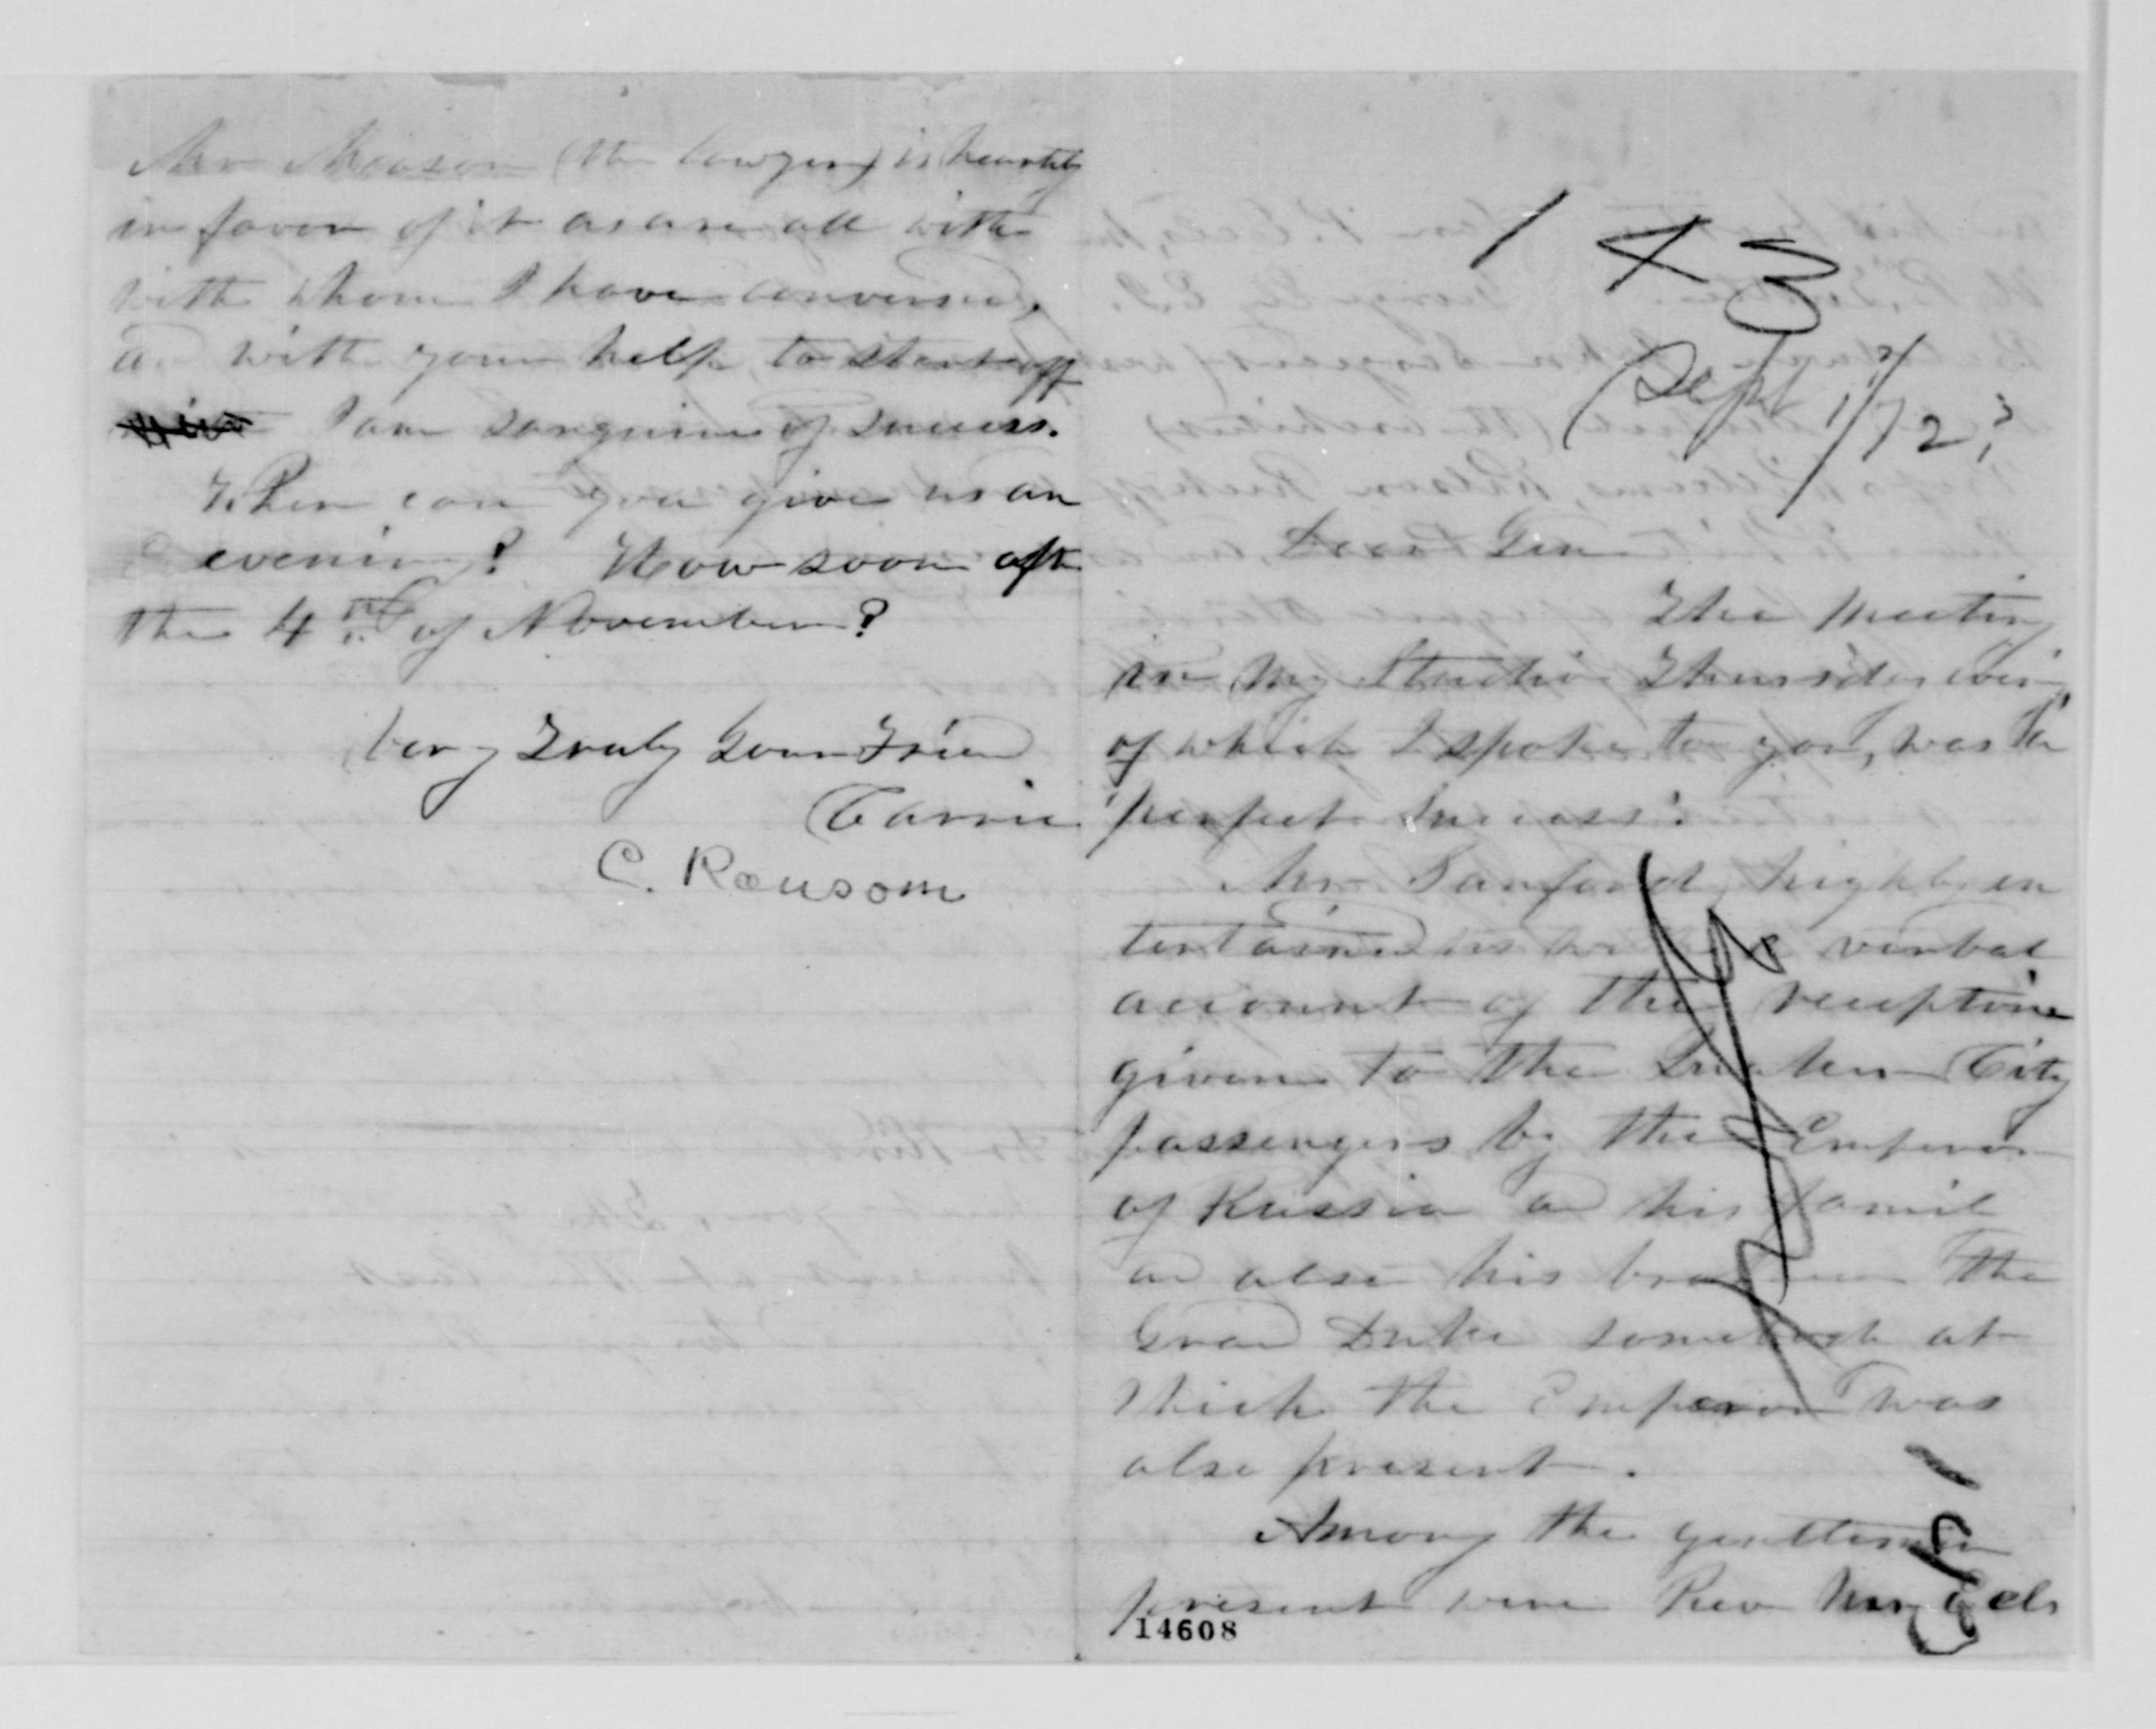 Mr Meason (the lawyer) is heartily
in favor of it as are all with
with whom I have conversed,
an with your help, to start off
I am sanguine of success.
When can you give us an
evening? How soon aft
the 4th of November?
Very Truly Your Friend
Carrie
C. Ransom
143
Sept 1/72?
Dear Gen
The Meeting
in my Studio Thursday even'g
of which I spoke to you, was "a
perfect success".
Mr Sanford highly en
tertained us with verbal
account of the reception
given to the Quaker City
passengers by the Emperor
of Russia an his famil
an also his brother the
Gran Duke somebody at
which the Emperor was
also present.
Among the gentlemen
present were Rev Mr Eels
143
14608